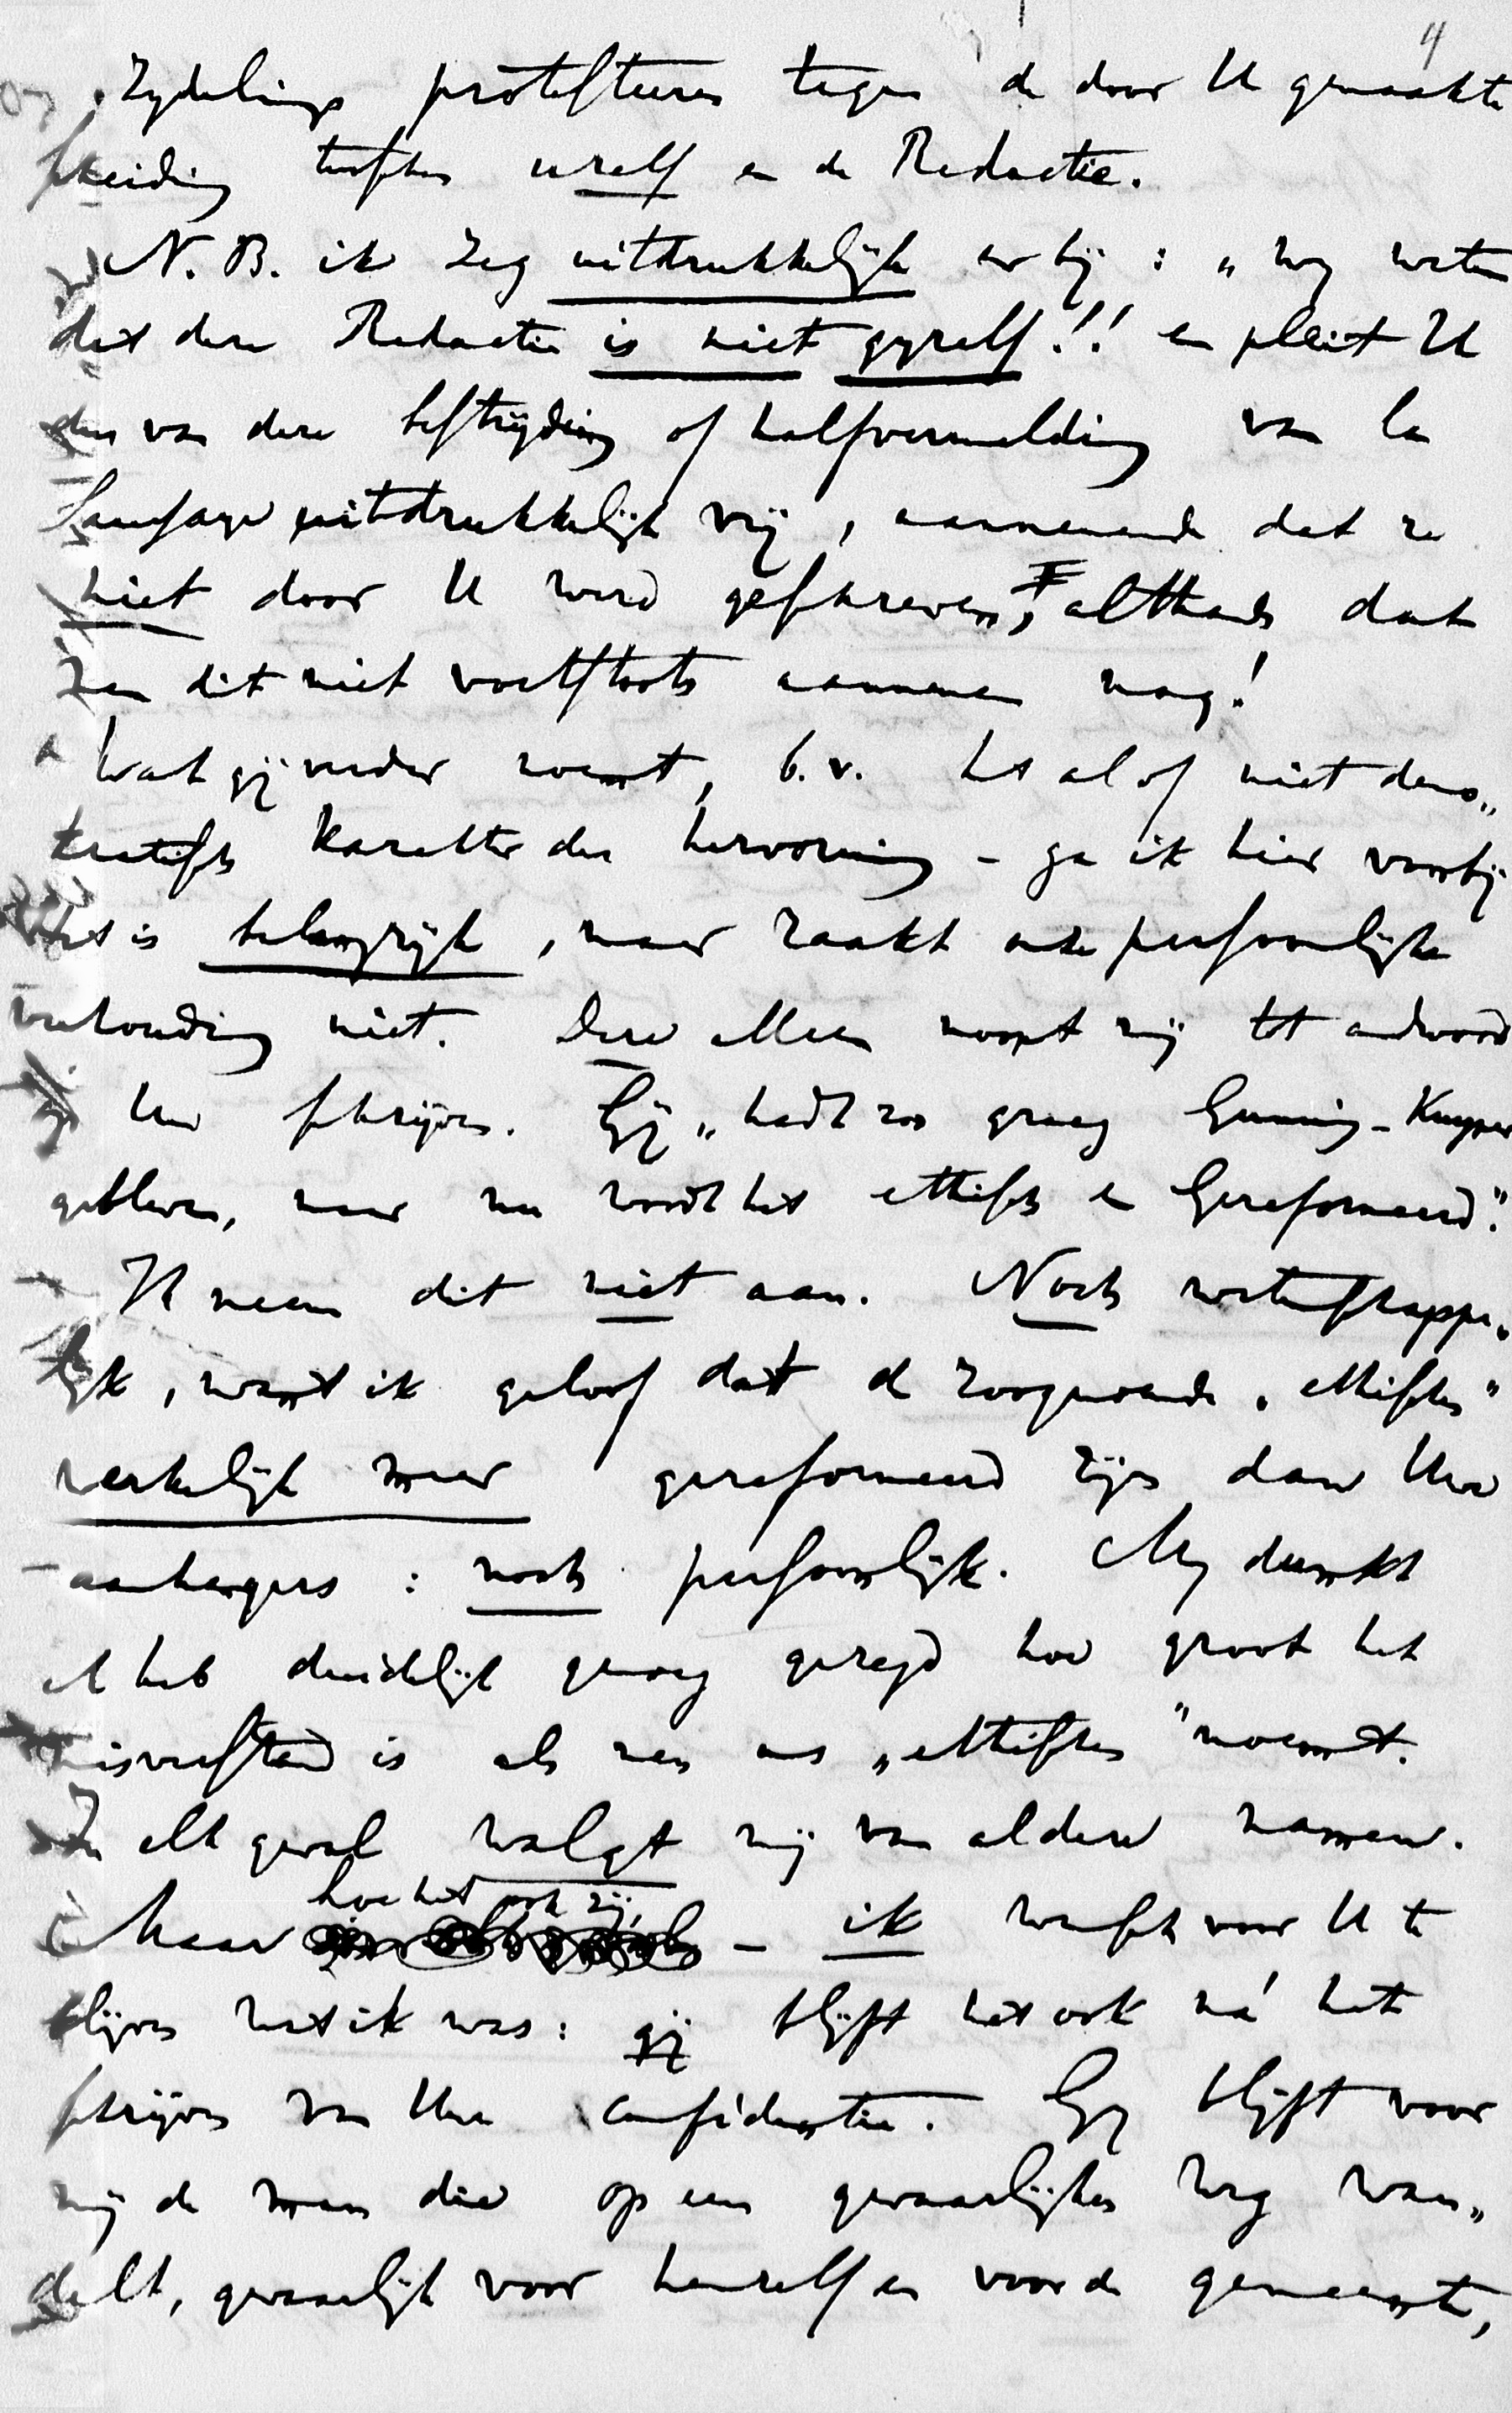 4
zydelings protesteeren tegen de door U gemaakte
scheiding tusschen uzelf en de Redactie.
N.B. ik zeg uitdrukkelijk er bij: „wy weten
dat deze Redactie is niet gyzelf!! en pleit U
dus van deze bestrijding of halfvermelding van la
Saussaye uitdrukkelijk vrij, aannemende dat ze
niet door U werd geschreven, althands dat
men dit niet voetstoots aannemen mag!
Wat gij verder noemt, b.v. het al of niet demo„
kratisch karakter der hervorming – ga ik hier voorbij
Het is belangrijk, maar raakt onze persoonlijke
verhouding niet. Deze alleen noopt mij tot antwoord
op Uw schrijven. Gij „hadt zoo graag Gunning-Kuyper
gebleven, maar nu wordt het ethisch en Gereformeerd."
Ik neem dit niet aan. Noch wetenschappe„
lijk, want ik geloof dat de zoogenoemde „ethischen"
werkelijk meer gereformeerd zijn dan Uwe
aanhangers: noch persoonlijk. My dunkt
ik heb duidelijk genoeg gezegd hoe groot het
misverstand is als men ons „ethischen" noemt.
In elk geval walgt mij van al deze namen.
Maar hoe het ook zij, – ik wensch voor U te
blijven wat ik was: gij blijft het ook ná het
schrijven van Uw Confidentie. Gy blijft voor
mij de man die op een gevaarlijken weg wan„
delt, gevaarlijk voor hemzelf en voor de gemeente,